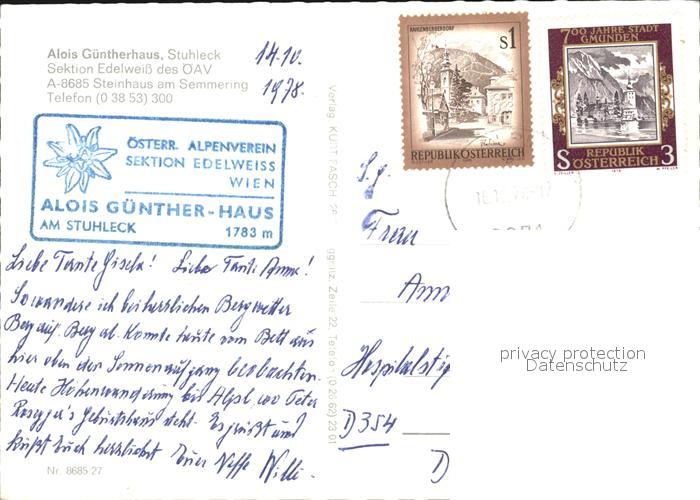 Alois Güntherhaus, Stuhleck
Sektion Edelweiß des ÖAV
A-8685 Steinhaus am Semmering
Telefon (0 38 53) 300
14.10.
1978.
ÖSTERR. ALPENVEREIN
SEKTION EDELWEISS
WIEN
ALOIS GÜNTHER-HAUS
AM STUHLECK 1783 m
Liebe Tante Gisela! Liebe Tanti Anna!
So wandere ich bei herrlichen Bergwetter
Berg auf. Berg ab. Konnte heute vom Bett aus
hier oben den Sonnenaufgang beobachten.
Heute Höhenwanderung bis Alpl wo Peter
Rosegger's Geburtshaus steht. Es grüßt und
küßt Euch herzlichst Euer Neffe Willi.
Nr. 8685 27
Verlag KURT
ggnitz, Zeile 22, Telefon (0 26 62) 23 01
S1
REPUBLIK ÖSTERREICH
700 JAHRE STADT
GMUNDEN
REPUBLIK
S ÖSTERREICH 3
S.g.
Frau
Ann
D 354
D
privacy protection
Datenschutz